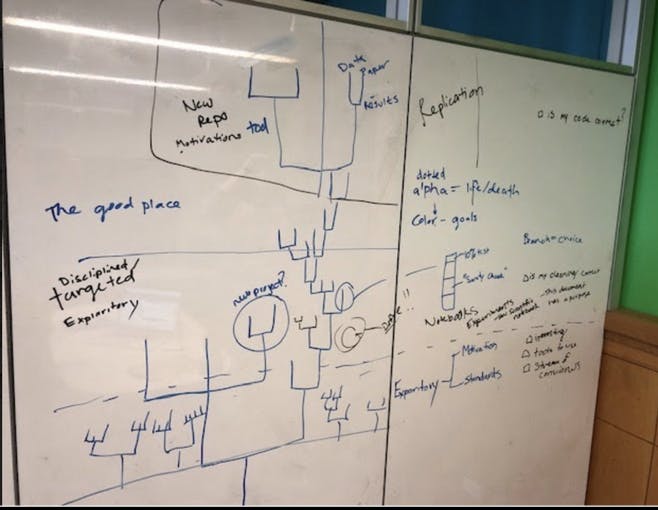 Data
Paper
Results
New
Repo
Motivations too
Replication
is my code correct?
dotted
alpha = life/death
color - goals
The good place
Disciplined/
targeted
Exploritory
New project?
Branch = choice
"Sanity Check"
is my cleaning correct
Notebooks
Experiments
- this document
has a purpose
Define!!
Exploritory
Motivation
Standards
interesting
tools to use
Stream of